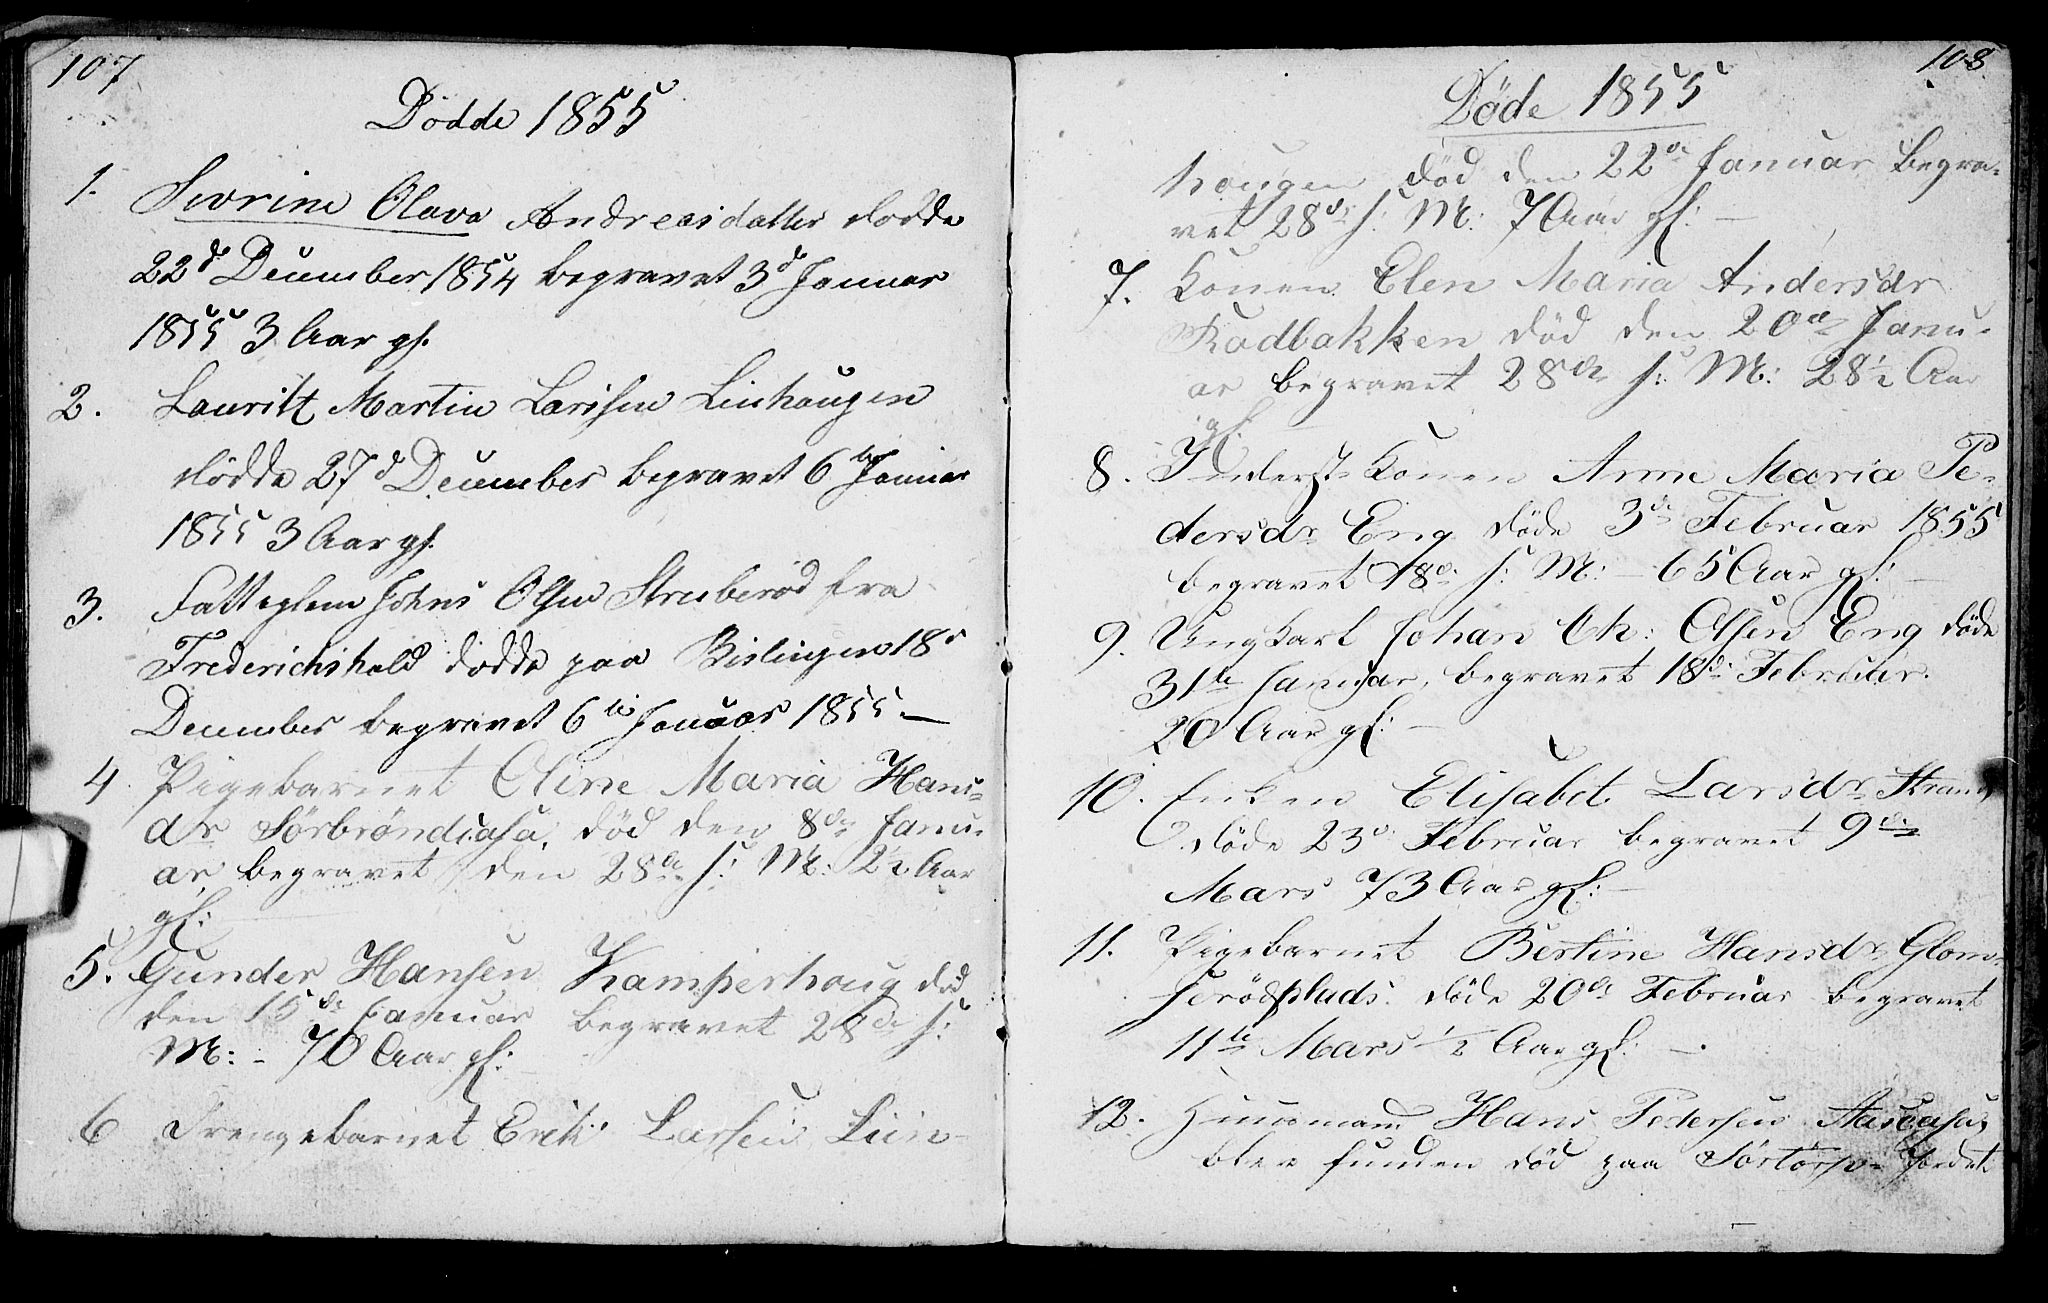 107
Dödde 1855
1. Sevrine Olava Andreasdatter dødde
22d December 1854 begravet 3d Januar
1855 3 Aar gl.
2. Lauritz Martin Larssen Linhougen
dödde 27d December begravet 6te Januar
1855 3 Aar gl.
3. Fattiglem Johns Olsen Struberöd fra
Frederichshald dödde paa Bislingen 18d
December begravet 6te Januar 1855. —
4. Pigebarnet Oline Maria Hans-
dr Sörbröndsasa, död den 8de Janu-
ar begravet den 28de s: M: 2½ Aar
gl: —
5. Gunder Hansen Kamperhoug död
den 15de Januar begravet 28de s:
M: - 70 Aar gl: —
6 Drengebarnet Erik Larsen Liin-
108
Døde 1855
hougen død den 22de Januar begra-
vet 28de s: M: 7 Aar gl: —
7. Konen Elen Maria Andersdr
Rodbakken død den 20de Janu-
ar begravet 28de s: M: 28½ Aar
gl: —
8. Inderst-Konen Anne Maria Pe-
dersdr Eng döde 3de Februar 1855
begravet 18de s: M: - 65 Aar gl: —
9. Ungkarl Johan Ch: Olsen Eng döde
31te Januar, begravet 18de Februar.
20 Aar gl: —
10. Enken Elisabet Larsdr Strand
döde 23de Februar begravet 9de
Mars 73 Aar gl: —
11. Pigebarnet Bertine Hansdr Glom-
seröd plads. döde 20de Februar begravet
11te Mars ½ Aar gl: —.
12. Huusmand Hans Pedersen
blev funden död paa Sörtörp- Jordet